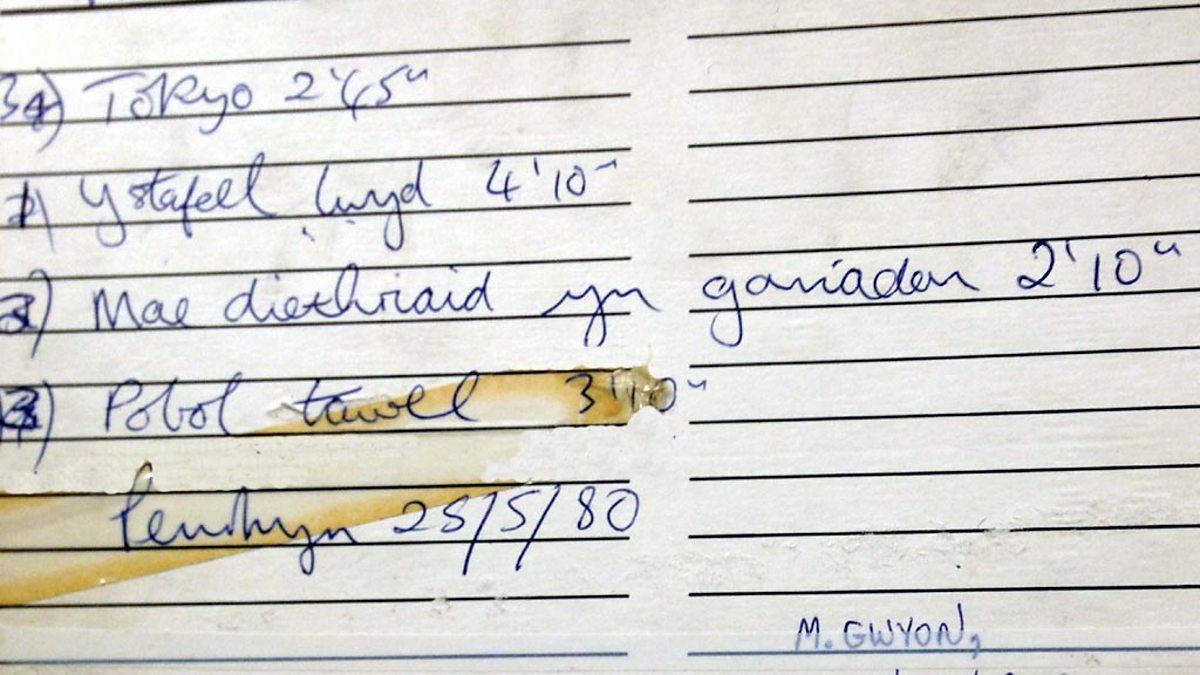 Tokyo 2'45"
1) Ystafell lwyd 4'10"
2) Mae diethriaid yn ganiaden 2'10"
3) Pobol tawel 3'10"
Penrhyn 25/5/80
M. GWYON,